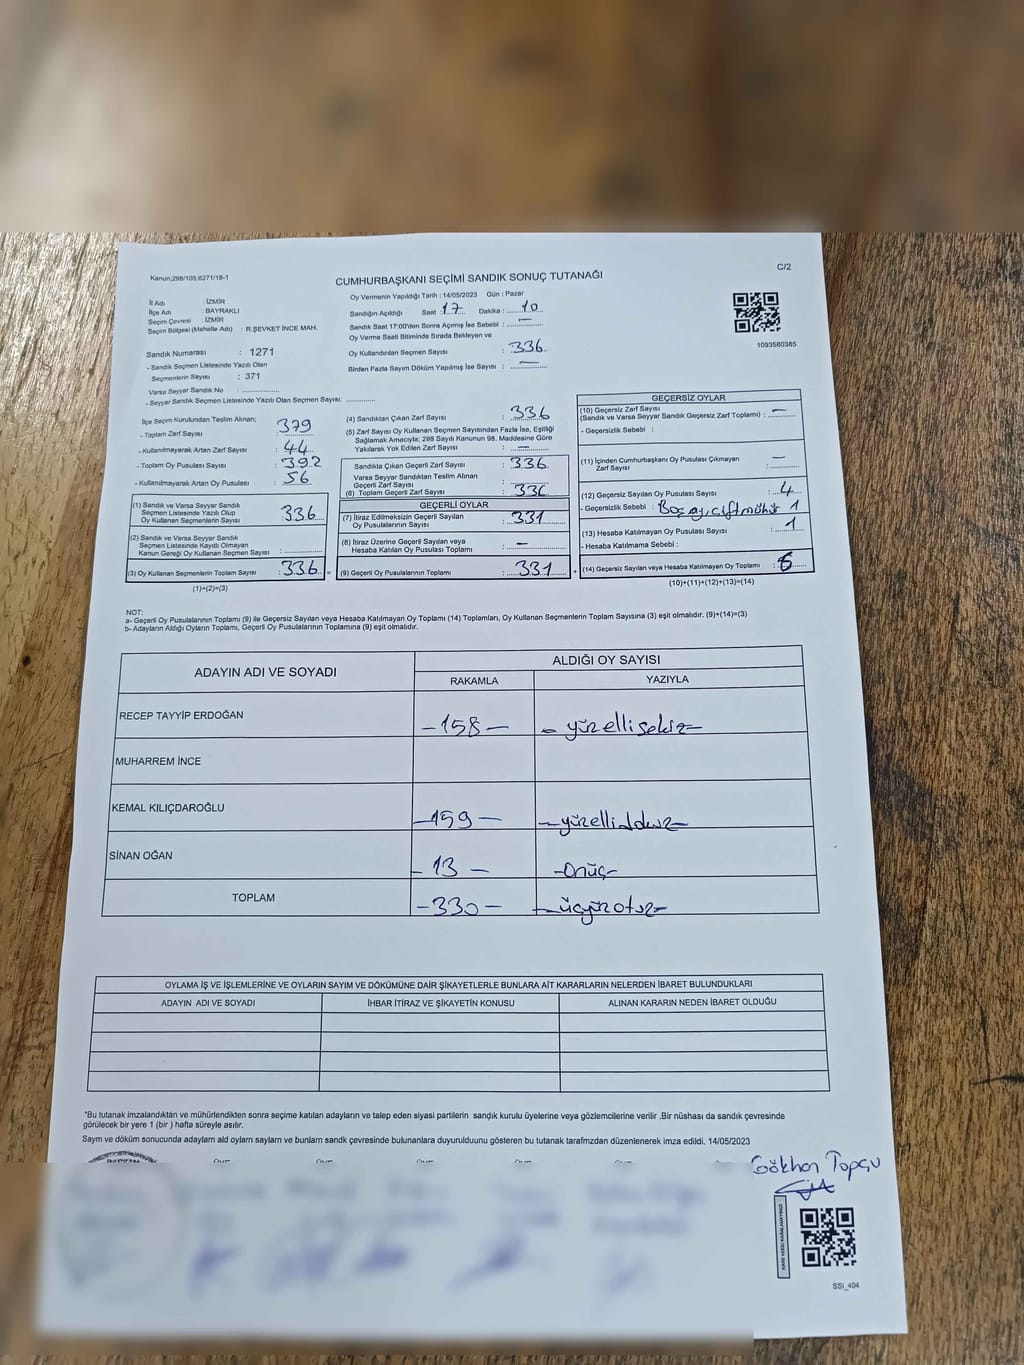 Kanun;298/105;6271/18-1
C/2
CUMHURBAŞKANI SEÇİMİ SANDIK SONUÇ TUTANAĞI
İl Adı : İZMİR
İlçe Adı : BAYRAKLI
Seçim Çevresi : İZMİR
Seçim Bölgesi (Mahalle Adı) : R.ŞEVKET İNCE MAH.
Sandık Numarası : 1271
- Sandık Seçmen Listesinde Yazılı Olan
Seçmenlerin Sayısı : 371
Varsa Seyyar Sandık No :
- Seyyar Sandık Seçmen Listesinde Yazılı Olan Seçmen Sayısı:
Oy Vermenin Yapıldığı Tarih : 14/05/2023 Gün : Pazar
Sandığın Açıldığı Saat 17 Dakika : 10
Sandık Saat 17:00'den Sonra Açımış İse Sebebi : —
Oy Verme Saati Bitiminde Sırada Bekleyen ve
Oy Kullandırılan Seçmen Sayısı : 336
Birden Fazla Sayım Döküm Yapılmış İse Sayısı : —
1093580385
İlçe Seçim Kurulundan Teslim Alınan;
- Toplam Zarf Sayısı : 379
- Kullanılmayarak Artan Zarf Sayısı : 44
- Toplam Oy Pusulası Sayısı : 392
- Kullanılmayarak Artan Oy Pusulası : 56
(1) Sandık ve Varsa Seyyar Sandık
Seçmen Listesinde Yazılı Olup
Oy Kullanan Seçmenlerin Sayısı : 336
(2) Sandık ve Varsa Seyyar Sandık
Seçmen Listesinde Kayıtlı Olmayan
Kanun Gereği Oy Kullanan Seçmen Sayısı :
(3) Oy Kullanan Seçmenlerin Toplam Sayısı : 336 =
(1)+(2)=(3)
(4) Sandıktan Çıkan Zarf Sayısı : 336
(5) Zarf Sayısı Oy Kullanan Seçmen Sayısından Fazla İse, Eşitliği
Sağlamak Amacıyla; 298 Sayılı Kanunun 98. Maddesine Göre
Yakılarak Yok Edilen Zarf Sayısı : —
Sandıkta Çıkan Geçerli Zarf Sayısı : 336
Varsa Seyyar Sandıktan Teslim Alınan
Geçerli Zarf Sayısı :
(6) Toplam Geçerli Zarf Sayısı : 336
GEÇERLİ OYLAR
(7) İtiraz Edilmeksizin Geçerli Sayılan
Oy Pusulalarının Sayısı : 331
(8) İtiraz Üzerine Geçerli Sayılan veya
Hesaba Katılan Oy Pusulası Toplamı : —
(9) Geçerli Oy Pusulalarının Toplamı : 331 +
GEÇERSİZ OYLAR
(10) Geçersiz Zarf Sayısı
(Sandık ve Varsa Seyyar Sandık Geçersiz Zarf Toplamı) : —
- Geçersizlik Sebebi :
(11) İçinden Cumhurbaşkanı Oy Pusulası Çıkmayan
Zarf Sayısı : —
(12) Geçersiz Sayılan Oy Pusulası Sayısı : 4
- Geçersizlik Sebebi : Boş oy, çift mühür 1
(13) Hesaba Katılmayan Oy Pusulası Sayısı : 1
- Hesaba Katılmama Sebebi :
(14) Geçersiz Sayılan veya Hesaba Katılmayan Oy Toplamı :
(10)+(11)+(12)+(13)=(14)
NOT:
a- Geçerli Oy Pusulalarının Toplamı (9) ile Geçersiz Sayılan veya Hesaba Katılmayan Oy Toplamı (14) Toplamları, Oy Kullanan Seçmenlerin Toplam Sayısına (3) eşit olmalıdır. (9)+(14)=(3)
b- Adayların Aldığı Oyların Toplamı, Geçerli Oy Pusulalarının Toplamına (9) eşit olmalıdır.
ADAYIN ADI VE SOYADI
ALDIĞI OY SAYISI
RAKAMLA YAZIYLA
RECEP TAYYİP ERDOĞAN -158- - yüzellisekiz-
MUHARREM İNCE
KEMAL KILIÇDAROĞLU -159- -yüzellidokuz-
SİNAN OĞAN - 13 - -Onüç-
TOPLAM -330- -üçyüzotuz-
OYLAMA İŞ VE İŞLEMLERİNE VE OYLARIN SAYIM VE DÖKÜMÜNE DAİR ŞİKAYETLERLE BUNLARA AİT KARARLARIN NELERDEN İBARET BULUNDUKLARI
ADAYIN ADI VE SOYADI İHBAR İTİRAZ VE ŞİKAYETİN KONUSU ALINAN KARARIN NEDEN İBARET OLDUĞU
"Bu tutanak imzalandıktan ve mühürlendikten sonra seçime katılan adayların ve talep eden siyasi partilerin sandık kurulu üyelerine veya gözlemcilerine verilir .Bir nüshası da sandık çevresinde
görülecek bir yere 1 (bir ) hafta süreyle asılır.
Saym ve döküm sonucunda adaylarn ald oylarn saylarn ve bunlarn sandk çevresinde bulunanlara duyurulduunu gösteren bu tutanak tarafmzdan düzenlenerek imza edildi. 14/05/2023
Gökhan Topçu
SSI_404